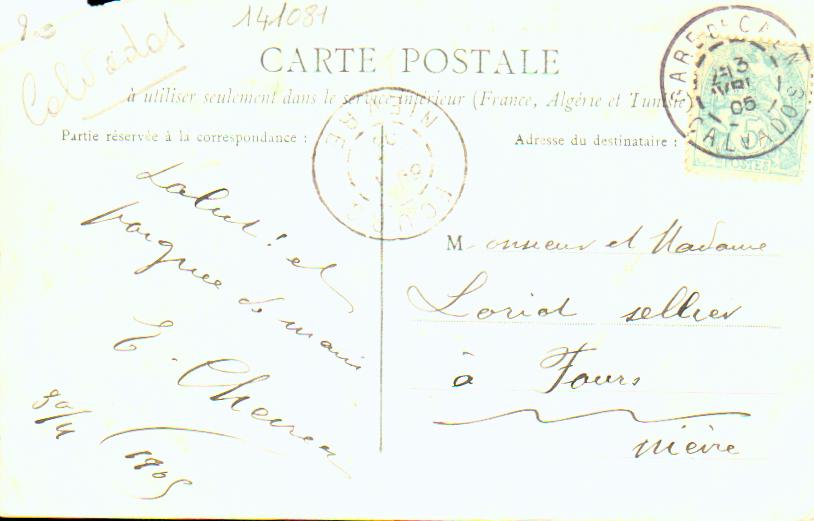 141081
Calvados
CARTE POSTALE
à utiliser seulement dans le service intérieur (France, Algérie et Tunisie)
Partie réservée à la correspondance :
Adresse du destinataire :
GARE DE CAEN
13
AVRIL
05
CALVADOS
5
POSTES
FOURS
NIEVRE
Salut ! et
poignée de main
1905
Monsieur et Madame
Loriot sellier
à Fours
nièvre